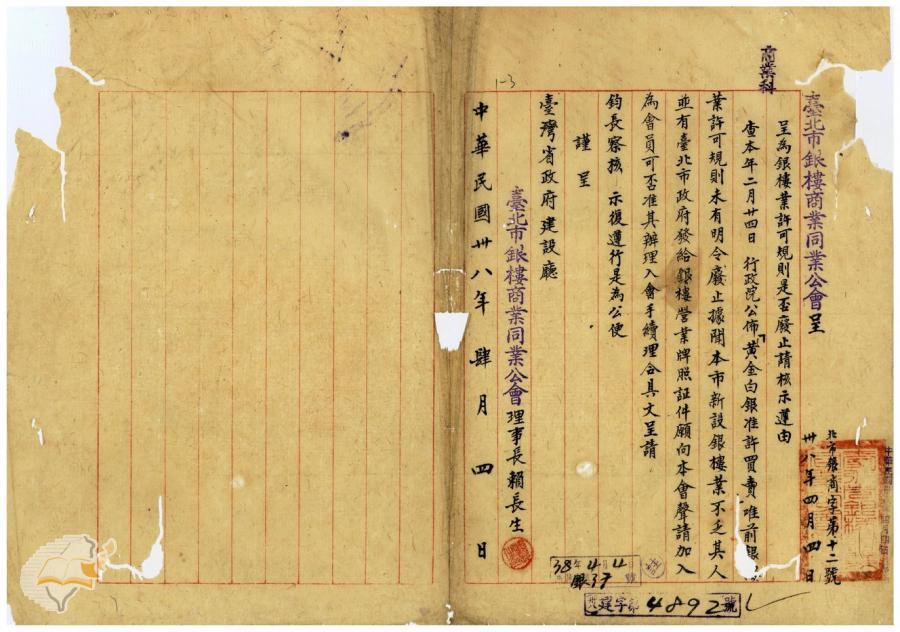 商業科
臺北市銀樓商業同業公會呈
北市銀商字第十二號
卅八年四月四日
呈為銀樓業許可規則是否廢止請核示遵由
查本年二月廿四日　行政院公佈「黃金白銀准許買賣唯前銀樓
業許可規則未有明令廢止據聞本市新設銀樓業不乏其人
並有臺北市政府發給銀樓營業牌照証件願向本會聲請加入
為會員可否准其辦理入會手續理合具文呈請
鈞長察核　示復遵行是為公便
謹呈
臺灣省政府建設廳
臺北市銀樓商業同業公會理事長賴長生
中華民國卅八年肆月四日
1-3
38年4月4
銀37號
建字第4892號